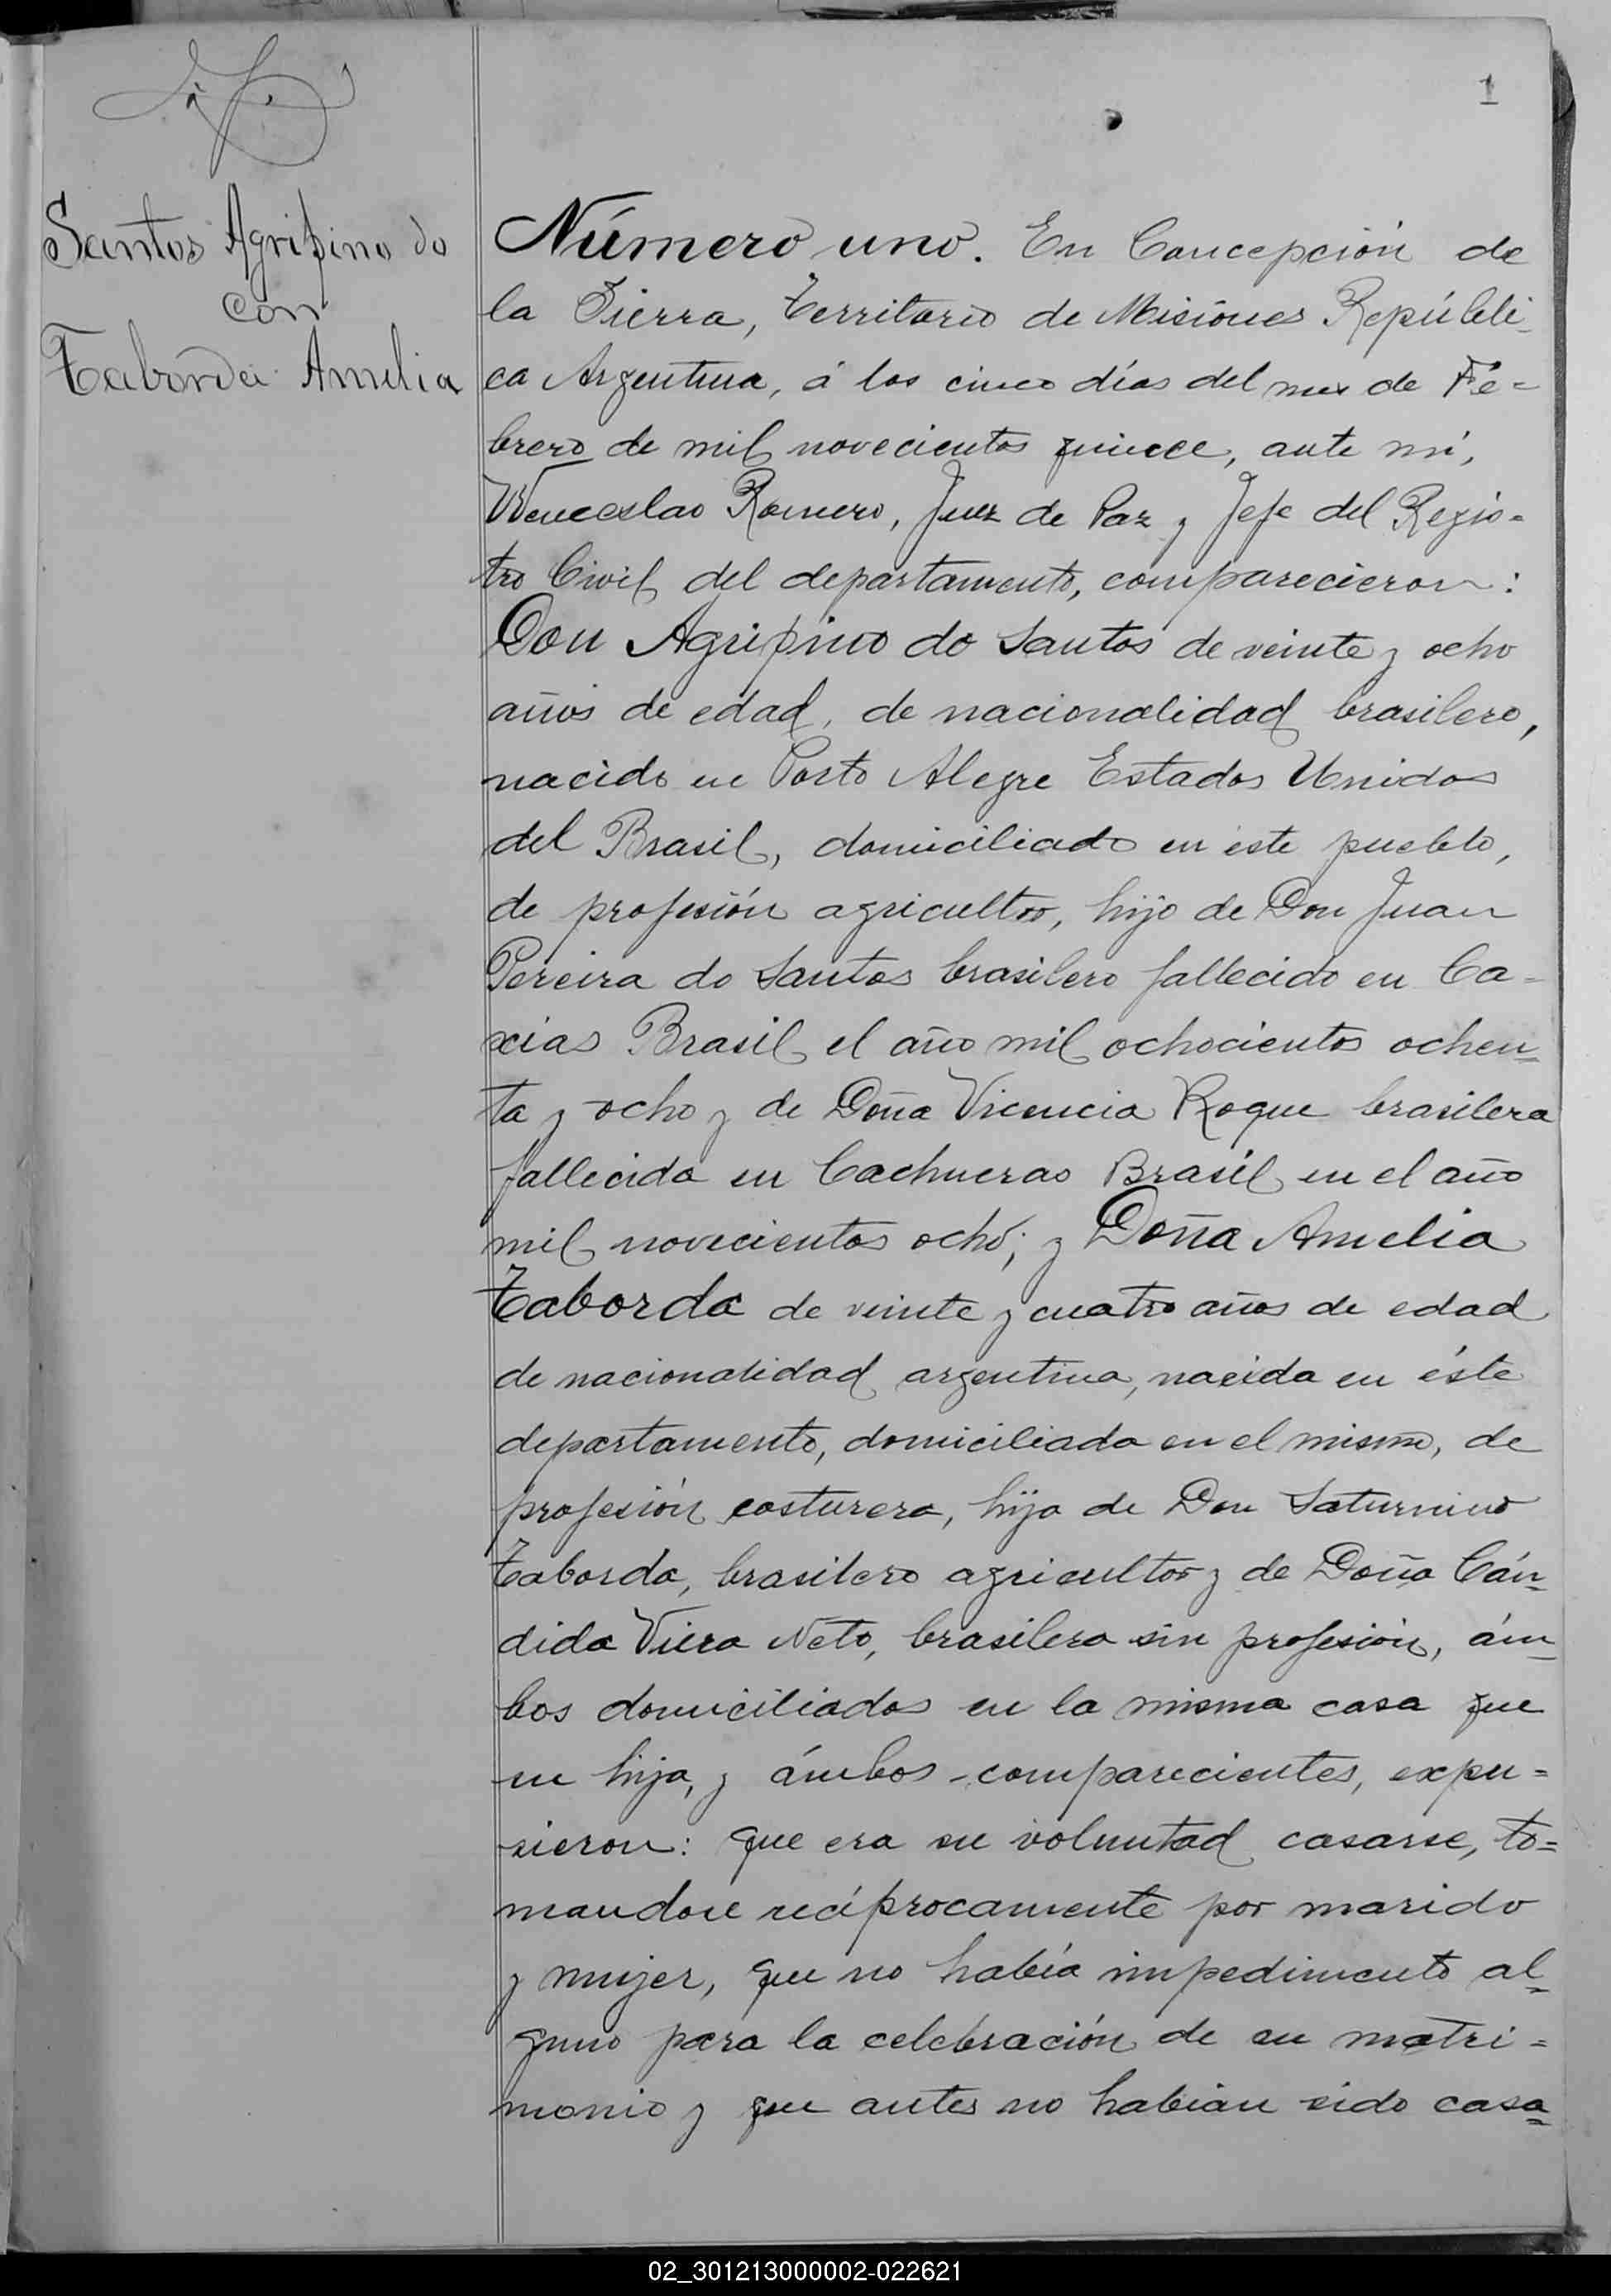 1
Santos Agripino do
con
Taborda Amelia
Número uno. En Concepción de
la Sierra, Territorio de Misiones Repúbli-
ca Argentina, á los cinco días del mes de Fe=
brero de mil novecientos quince, ante mí,
Wenceslao Romero, Juez de Paz y Jefe del Regis=
tro Civil del departamento, comparecieron:
Don Agripino do Santos de veinte y ocho
años de edad, de nacionalidad brasilero,
nacido en Porto Alegre Estados Unidos
del Brasil, domiciliado en éste pueblo,
de profesión agricultor, hijo de Don Juan
Pereira do Santos brasilero fallecido en Ca=
xias Brasil el año mil ochocientos ochen=
ta y ocho y de Doña Vicencia Roque brasilera
fallecida en Cachueras Brasil en el año
mil novecientos ocho; y Doña Amelia
Taborda de veinte y cuatro años de edad
de nacionalidad argentina, nacida en éste
departamento, domiciliada en el mismo, de
profesión costurera, hija de Don Saturnino
Taborda, brasilero agricultor y de Doña Cán=
dida Viera Neto, brasilera sin profesión, ám=
bos domiciliados en la misma casa que
su hija, y ámbos comparecientes, expu=
sieron: que era su voluntad casarse, to=
mandose recíprocamente por marido
y mujer, que no había impedimento al=
guno para la celebración de su matri=
monio y que antes no habian sido casa=
02_301213000002-022621